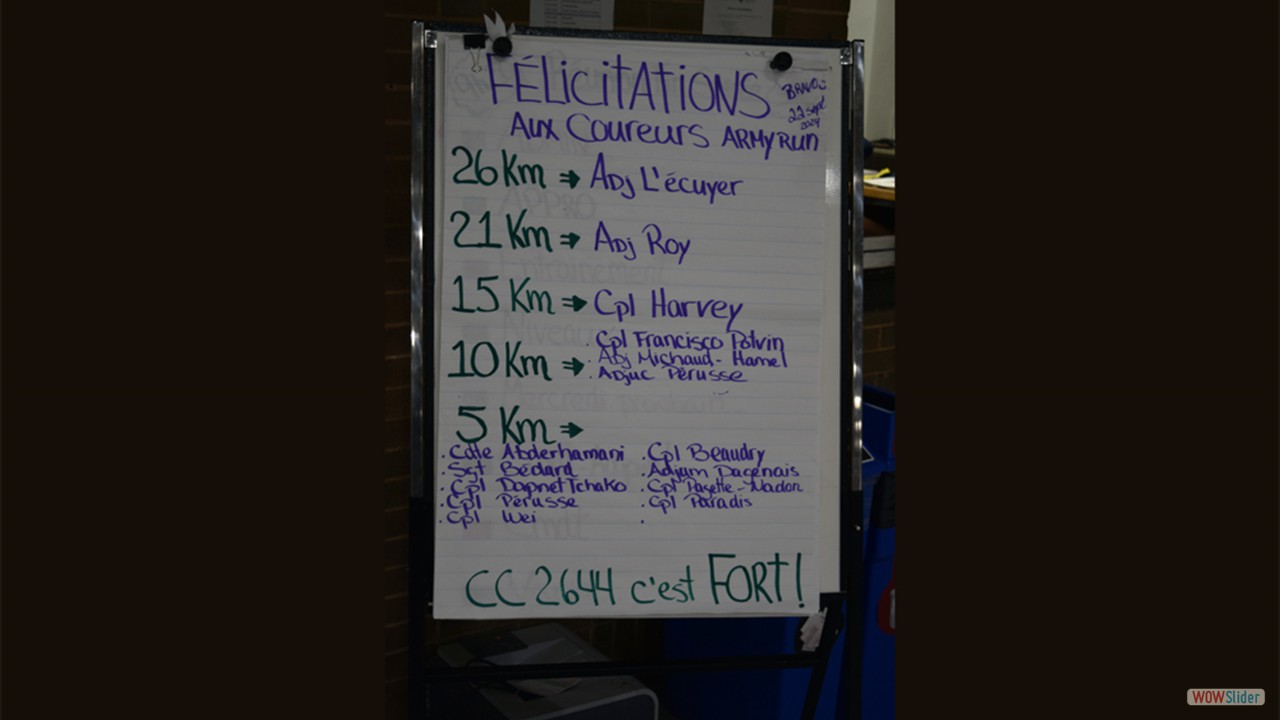 FÉLICITATIONS
BRAVO
22 sept
2024
Aux Coureurs ARMY RUN
26 Km → Adj L'écuyer
21 Km → Adj Roy
15 Km → Cpl Harvey
10 Km →
. Cpl Francisco Potvin
. Adj Michaud-Hamel
. Adjuc Pérusse
5 Km →
. Cdte Abderhamani
. Sgt Bédard
. Cpl Dapnet Tchako
. Cpl Pérusse
. Cpl Wei
. Cpl Beaudry
. Adjum Dagenais
. Cpl Pagette-Nadon
. Cpl Paradis
.
CC 2644 c'est FORT!
WOWSlider